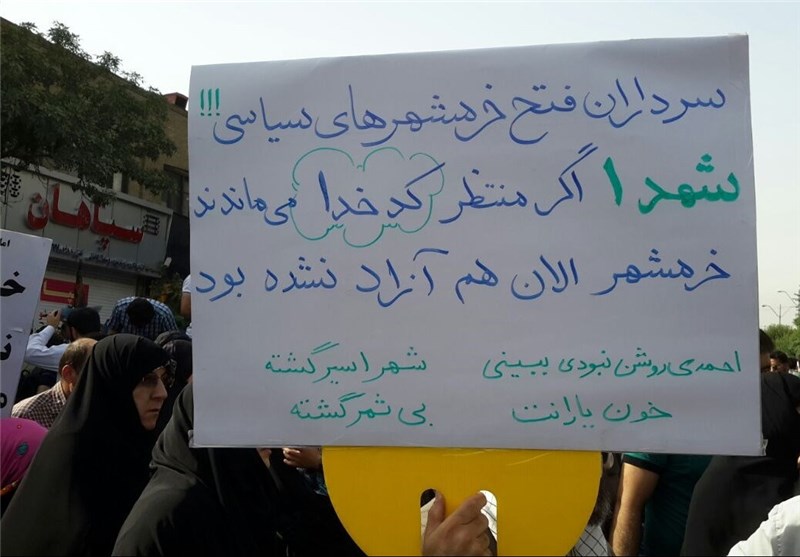 سرداران فتح خرمشهرهای سیاسی!!!
شهدا اگر منتظر کدخدا می‌ماندند
خرمشهر الان هم آزاد نشده بود
احمدی روشن نبودی ببینی شهر اسیر گشته
خون یارانت بی ثمر گشته
سپاهان